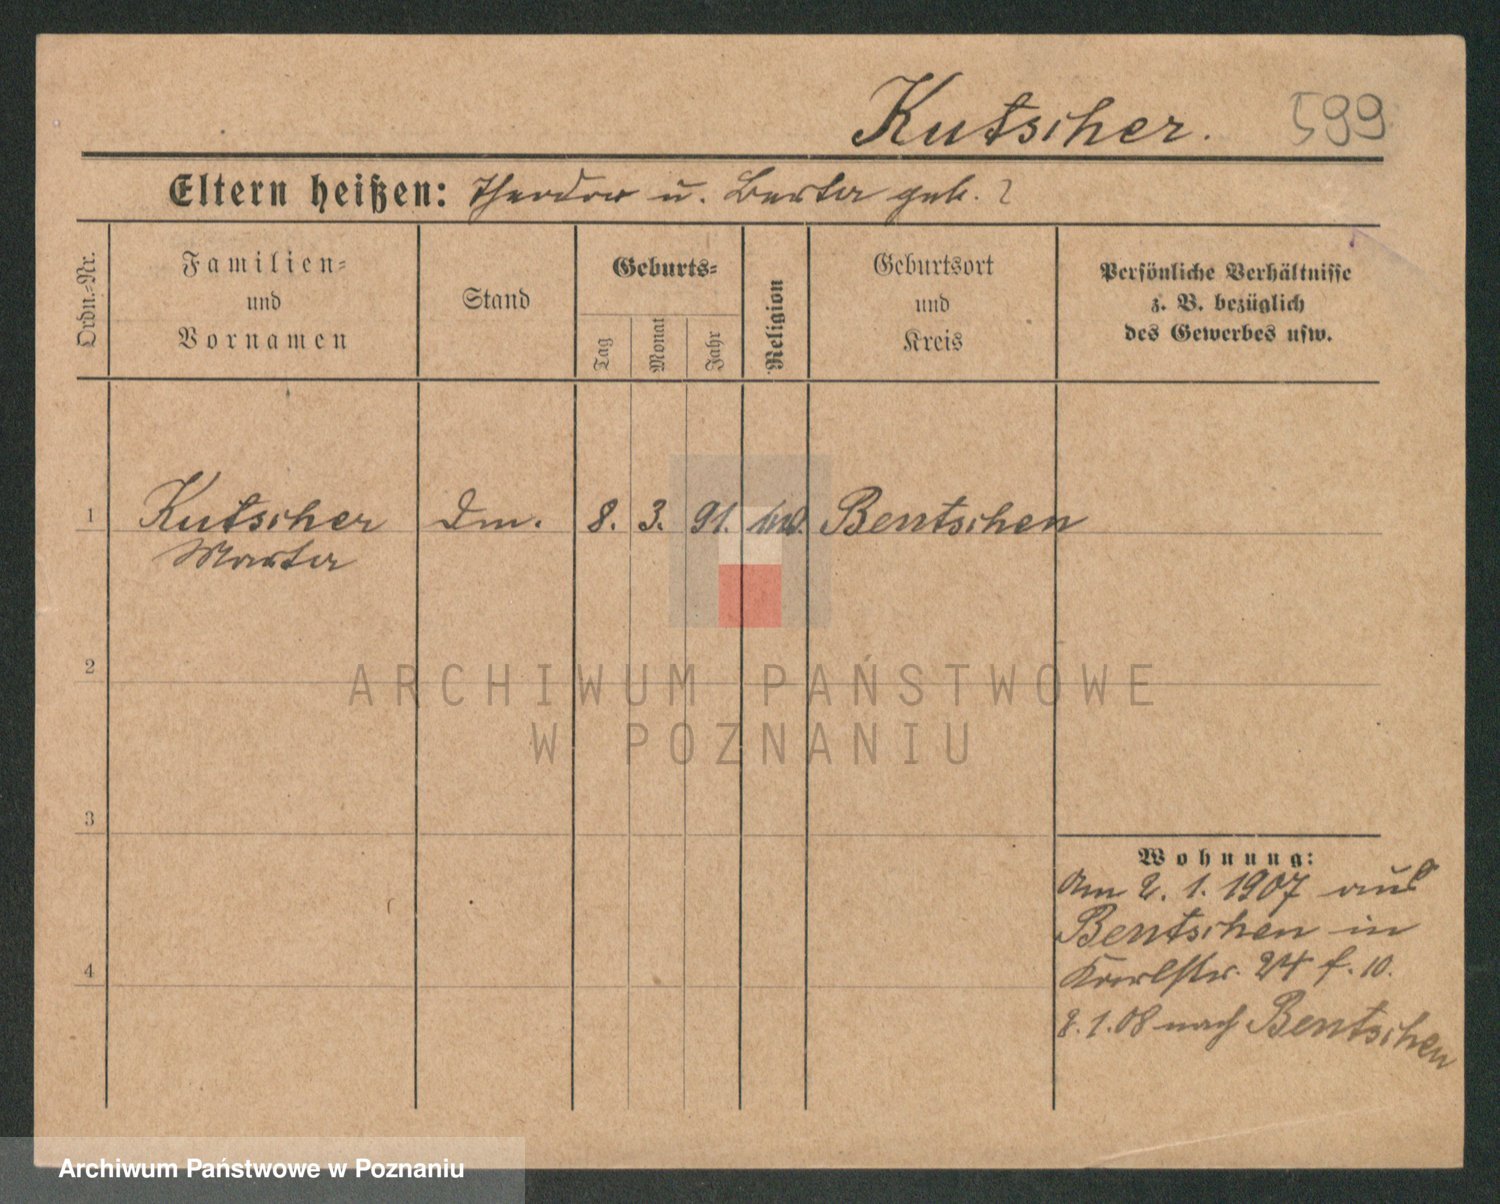 Kutscher. 599
Eltern heißen: Theodor u. Berta geb. ?
Ordn.-Nr.
Familien-
und
Vornamen
Stand
Geburts-
Tag
Monat
Jahr
Religion
Geburtsort
und
Kreis
Persönliche Verhältnisse
z. B. bezüglich
des Gewerbes usw.
1 Kutscher Dm. 8. 3. 91. Bentschen
Marta
2
3
4
Wohnung:
Am 2. 1. 1907 aus
Bentschen in
Karlstr. 24 f. 10.
2. 1. 08 nach Bentschen
ARCHIWUM PAŃSTWOWE
W POZNANIU
Archiwum Państwowe w Poznaniu